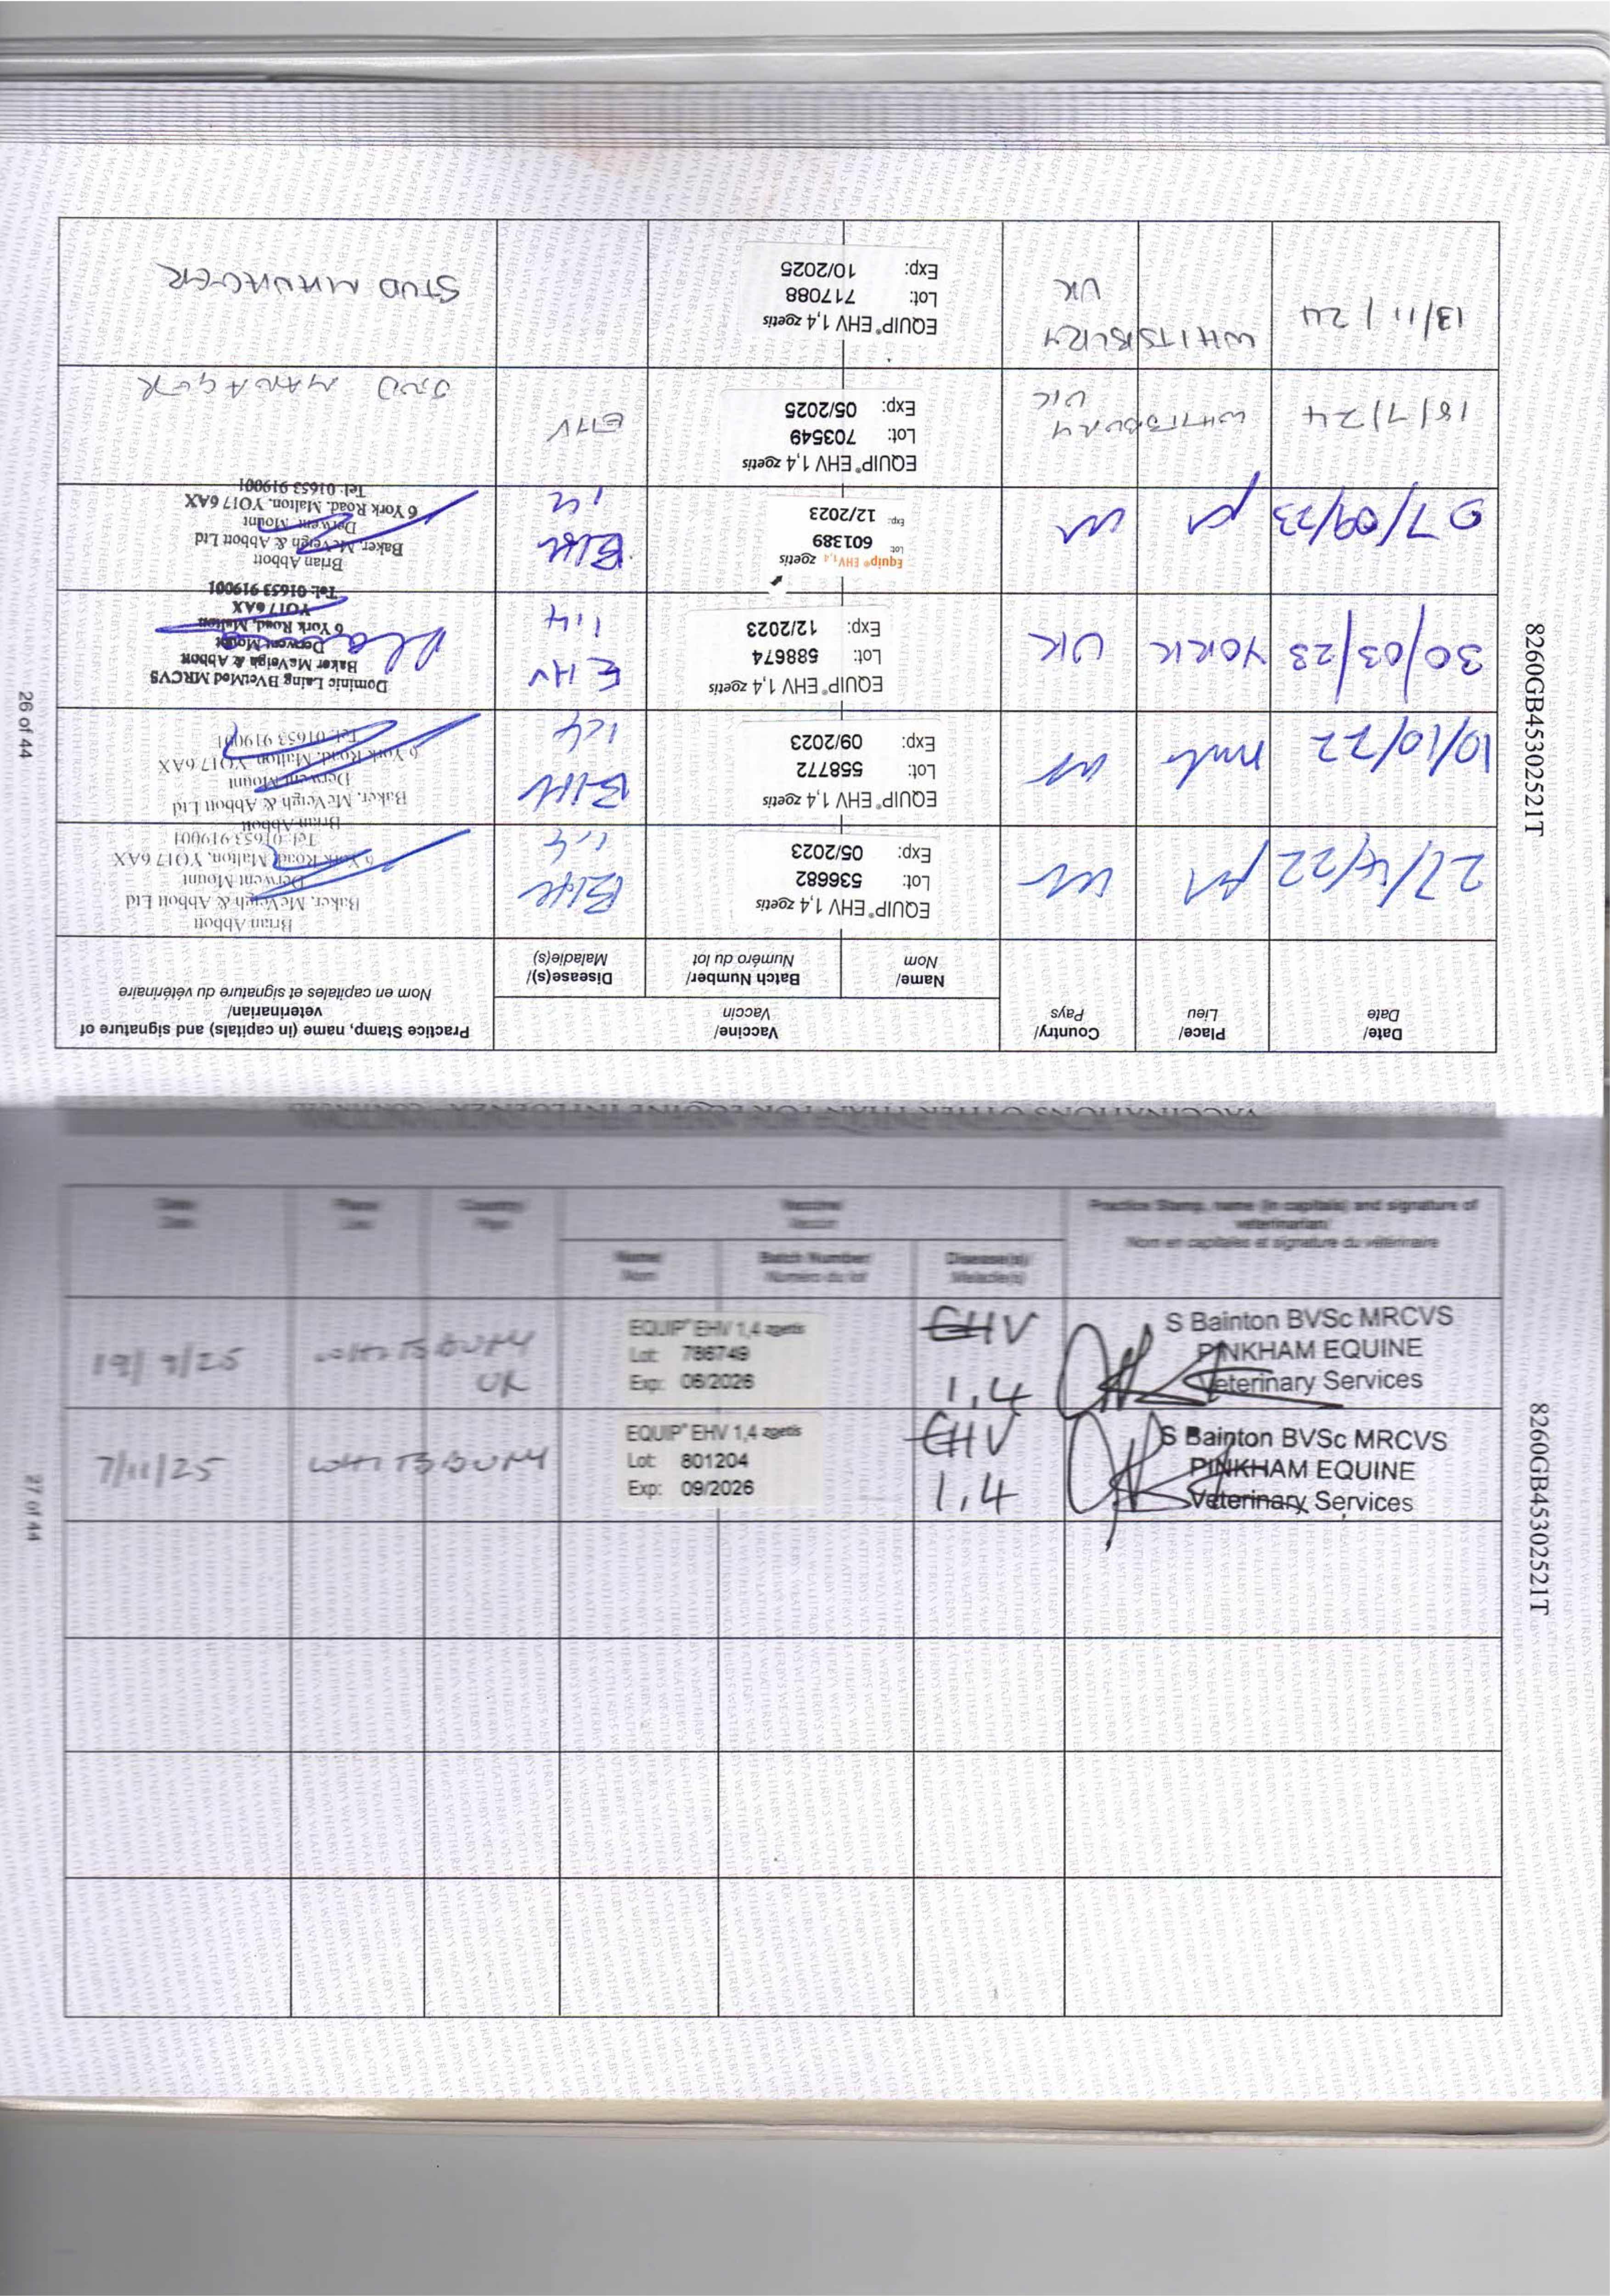 VACCINATIONS OTHER THAN FOR EQUINE INFLUENZA - CONTINUED
Date/
Date
Place/
Lieu
Country/
Pays
Vaccine/
Vaccin
Name/
Nom
Batch Number/
Numéro du lot
Disease(s)/
Maladie(s)
Practice Stamp, name (in capitals) and signature of
veterinarian/
Nom en capitales et signature du vétérinaire
27/4/22
EQUIP® EHV 1,4 zoetis
Lot: 536682
Exp: 05/2023
EHV
1,4
Brian Abbott
Baker, McVeigh & Abbott Ltd
Derwent Mount
6 York Road, Malton, YO17 6AX
Tel: 01653 919001
10/10/22
EQUIP® EHV 1,4 zoetis
Lot: 558772
Exp: 09/2023
EHV
1,4
Brian Abbott
Baker, McVeigh & Abbott Ltd
Derwent Mount
6 York Road, Malton, YO17 6AX
Tel: 01653 919001
30/03/23 YORK UK
EQUIP® EHV 1,4 zoetis
Lot: 588674
Exp: 12/2023
EHV
1,4
Dominic Laing BVetMed MRCVS
Baker McVeigh & Abbott
Derwent Mount
6 York Road, Malton
YO17 6AX
Tel: 01653 919001
07/09/23
Equip® EHV 1,4 zoetis
Lot 601389
Exp: 12/2023
EHV
1,4
Brian Abbott
Baker, McVeigh & Abbott Ltd
Derwent Mount
6 York Road, Malton, YO17 6AX
Tel: 01653 919001
18/7/24 WHITSBURY
UK
EQUIP® EHV 1,4 zoetis
Lot: 703549
Exp: 05/2025
EHV
STUD MANAGER
13/11/24 WHITSBURY
UK
EQUIP® EHV 1,4 zoetis
Lot: 717088
Exp: 10/2025
STUD MANAGER
26 of 44
8260GB45302521T
Date
Date
Place
Lieu
Country
Pays
Vaccine
Vaccin
Name
Nom
Batch Number
Numéro du lot
Disease(s)
Maladie(s)
Practice Stamp, name (in capitals) and signature of
veterinarian/
Nom en capitales et signature du vétérinaire
19/9/25 WHITSBURY
UK
EQUIP® EHV 1,4 zoetis
Lot: 786749
Exp: 06/2026
EHV
1,4
S Bainton BVSc MRCVS
PINKHAM EQUINE
Veterinary Services
7/11/25 WHITSBURY
EQUIP® EHV 1,4 zoetis
Lot: 801204
Exp: 09/2026
EHV
1,4
S Bainton BVSc MRCVS
PINKHAM EQUINE
Veterinary Services
27 of 44
8260GB45302521T